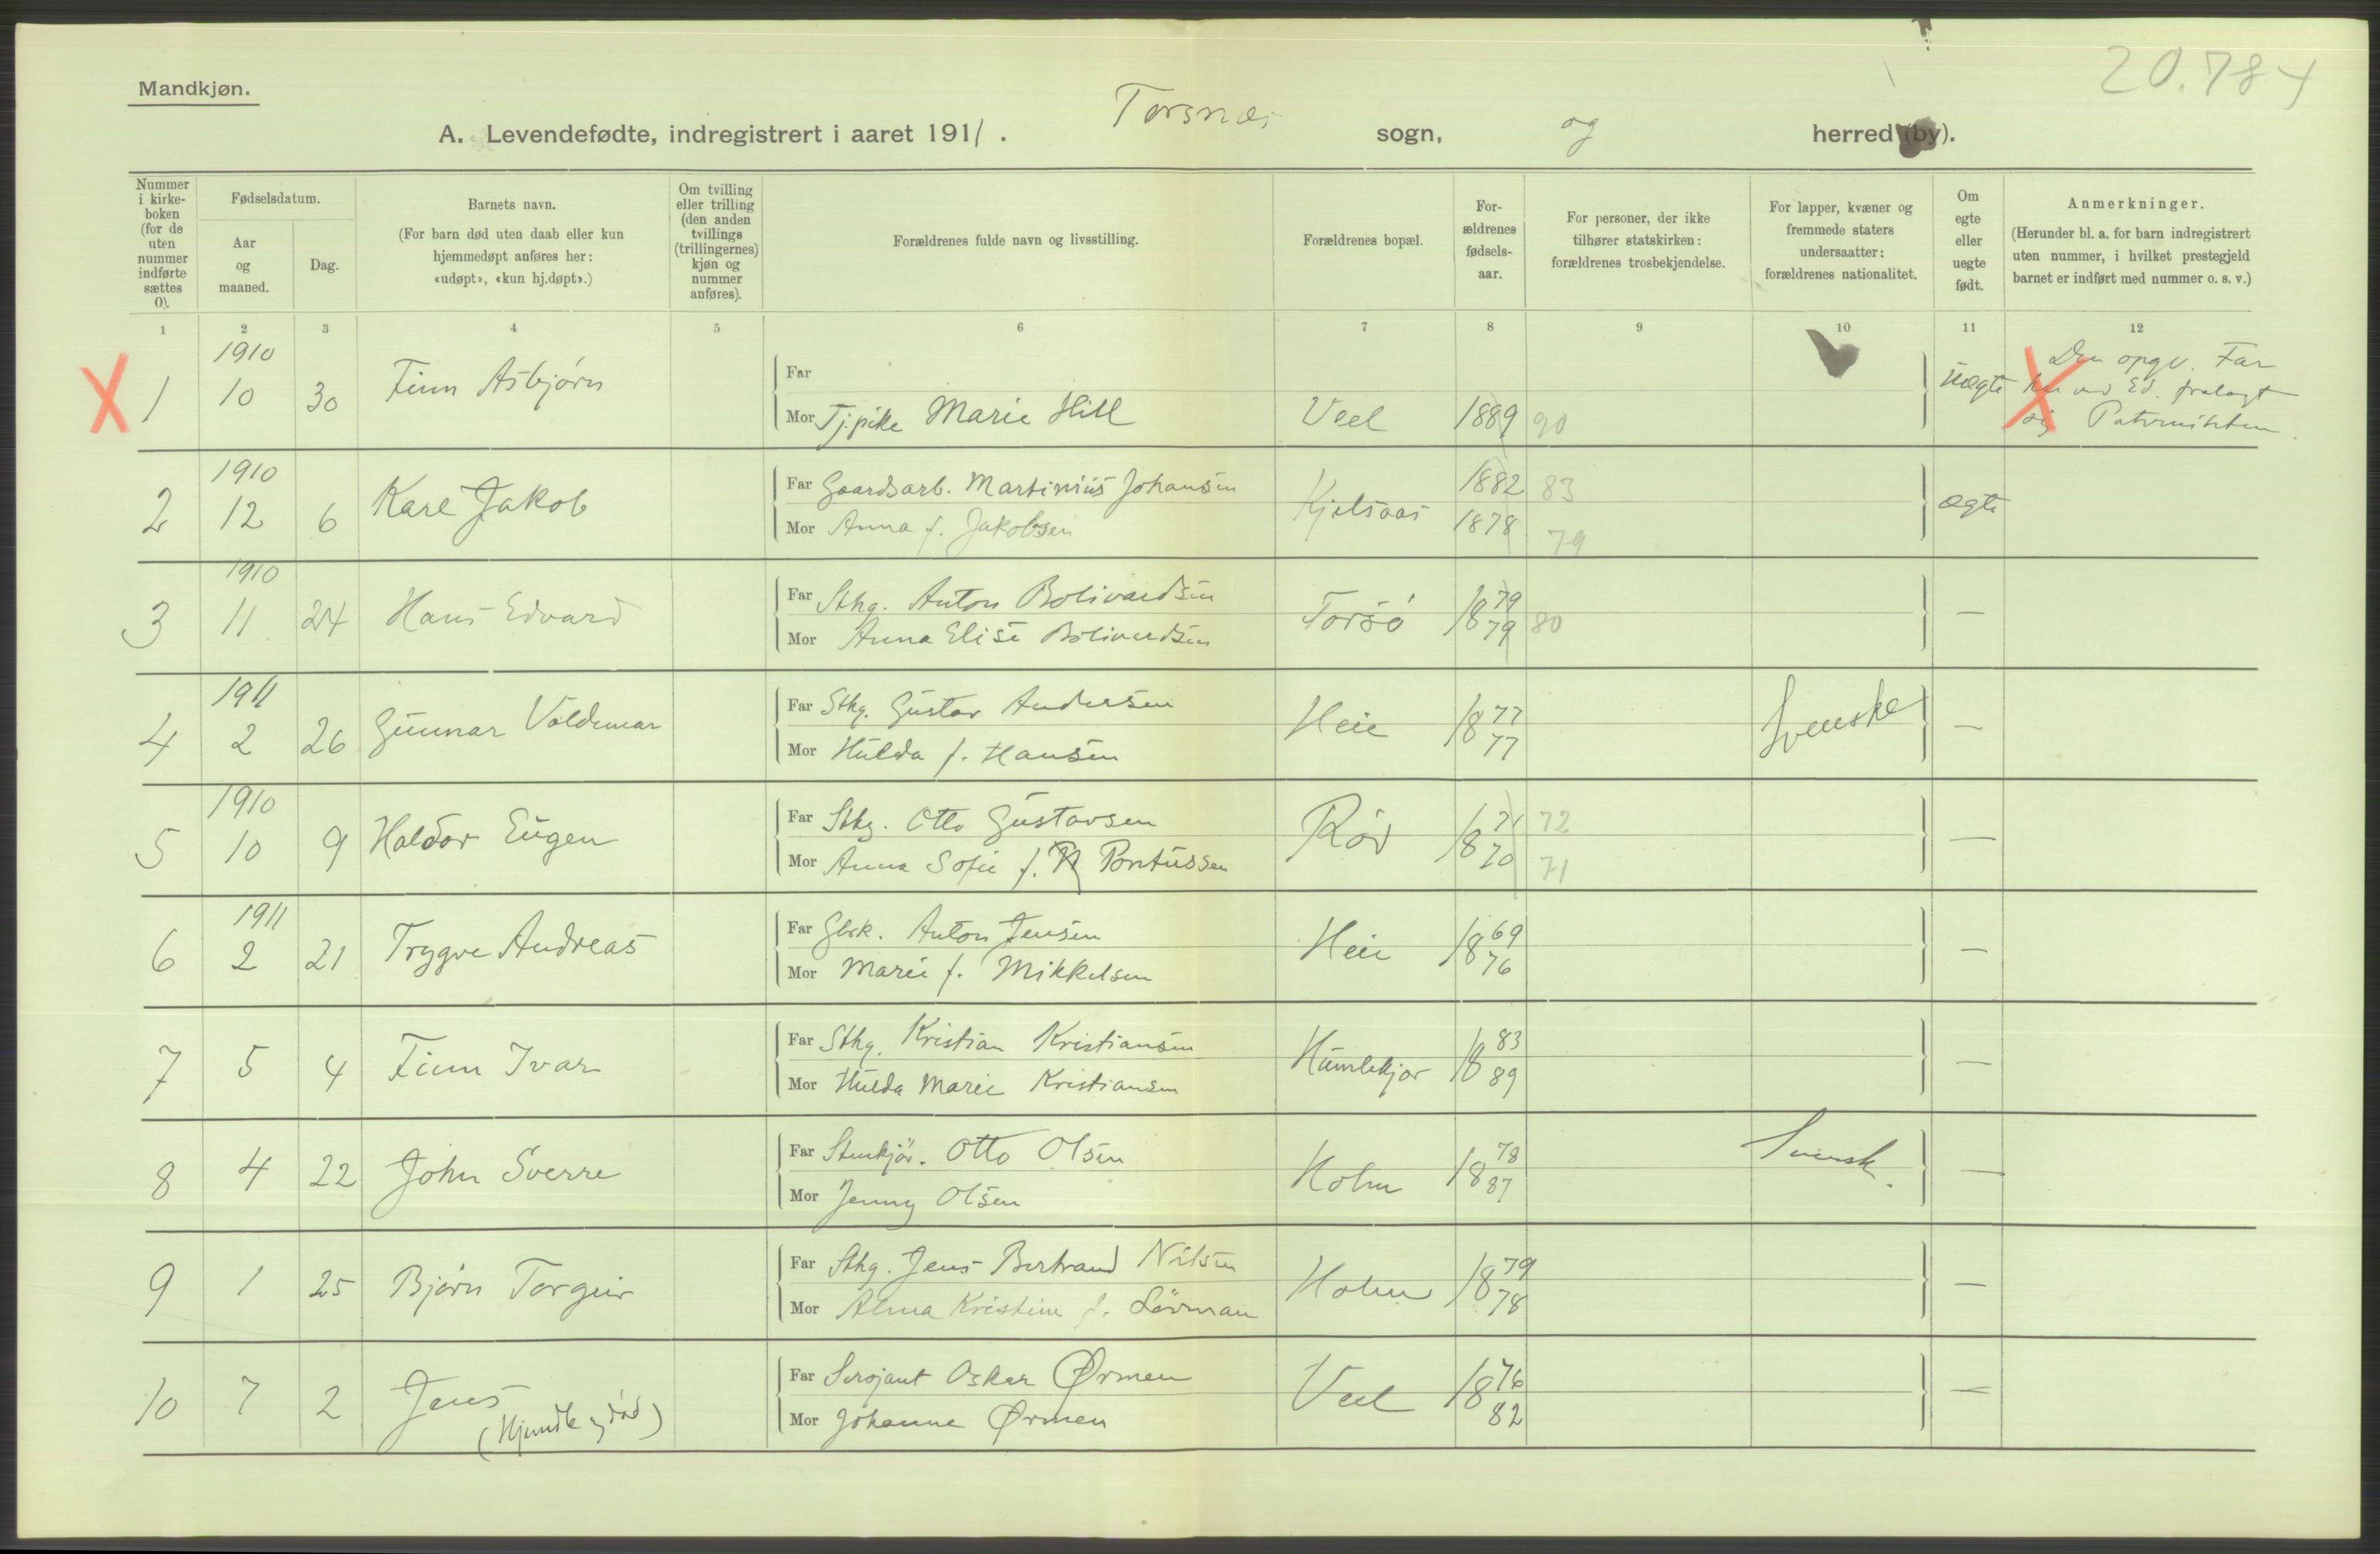 20.784
Mandkjøn.
A. Levendefødte, indregistrert i aaret 1911. Torsnes sogn, og herred (by).
Nummer i kirke-boken (for de uten nummer indførte sættes 0).
Fødselsdatum.
Aar og maaned.
Dag.
Barnets navn.
(For barn død uten daab eller kun hjemmedøpt anføres her: «udøpt», «kun hj.døpt».)
Om tvilling eller trilling (den anden tvillings (trillingernes) kjøn og nummer anføres).
Forældrenes fulde navn og livsstilling.
Forældrenes bopæl.
For-ældrenes fødsels-aar.
For personer, der ikke tilhører statskirken: forældrenes trosbekjendelse.
For lapper, kvæner og fremmede staters undersaatter: forældrenes nationalitet.
Om egte eller uegte født.
Anmerkninger.
(Herunder bl. a. for barn indregistrert uten nummer, i hvilket prestegjeld barnet er indført med nummer o. s. v.)
1 2 3 4 5 6 7 8 9 10 11 12
1 1910 10 30 Finn Asbjørn Far uægte Den opgv. Far
Mor Tj.pike Marie Hill Veel 1889 90 har ved Ed. fralagt
sig Paterniteten.
2 1910 12 6 Kare Jakob Far Gaardsarb. Martinius Johansen Kjelsaas 1882 83 ægte
Mor Anna f. Jakobsen 1878 79
3 1910 11 24 Hans Edvard Far Sthg. Anton Bolivardsen Torsø 1879 —
Mor Anna Elise Bolivardsen 79 80
4 1911 2 26 Gunnar Valdemar Far Sthg. Gustav Andersen Heie 1877 Svenske —
Mor Hulda f. Hansen 77
5 1910 10 9 Haldor Eugen Far Sthg. Otto Gustavsen Rød 1871 72 —
Mor Anna Sofie f. Pontussen 70 71
6 1911 2 21 Trygve Andreas Far Gbrk. Anton Jensen Heie 1869 —
Mor Marie f. Mikkelsen 76
7 5 4 Finn Ivar Far Sthg. Kristian Kristiansen Humlekjær 1883 —
Mor Hulda Marie Kristiansen 89
8 4 22 John Sverre Far Stenkjør. Otto Olsen Holm 1878 Svensk. —
Mor Jenny Olsen 87
9 1 25 Bjørn Torgeir Far Sthg. Jens Bertrand Nilsen Holm 1879 —
Mor Alma Kristine f. Lövman 78
10 7 2 Jens Far Sersjant Oskar Ørmen Veel 1876 —
(Hjemdb og død) Mor Johanne Ørmen 82